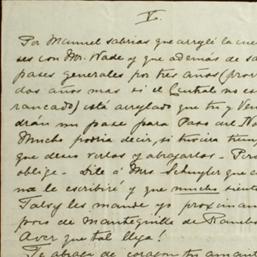 V.
Por Manuel sabrías que arreglé la cue
ses con Mr. Wade y que además de sa
pases generales por tres años (pror
dos años mas si el Central no es
rancado) está arreglado que tú y Ven
drán un pase para Paso del N
Mucho podría decir, si tuviera tiem
que deseo verlos y abrazarlos - Pero
oblige - Dile á Mrs Schuyler que
no le escribiré y que mucho siento
Tatsy les mande yo proximam
de Mantequilla de Rambo
Aver que tal llega!
Te abraza de corazon tu amante